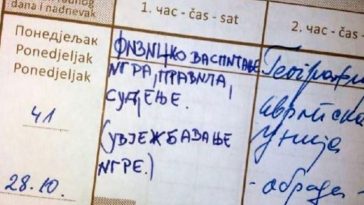 dana i nadnevak
1. час - čas - sat
2. час - čas
Понедјељак
Ponedjeljak
Ponedjeljak
41
28.10.
ФИЗИЧКО ВАСПИТАЊЕ
ИГРА, ПРАВИЛА,
СУЂЕЊЕ.
(УВЈЕЖБАВАЊЕ
ИГРЕ.)
Географи
Унија
-обрада-